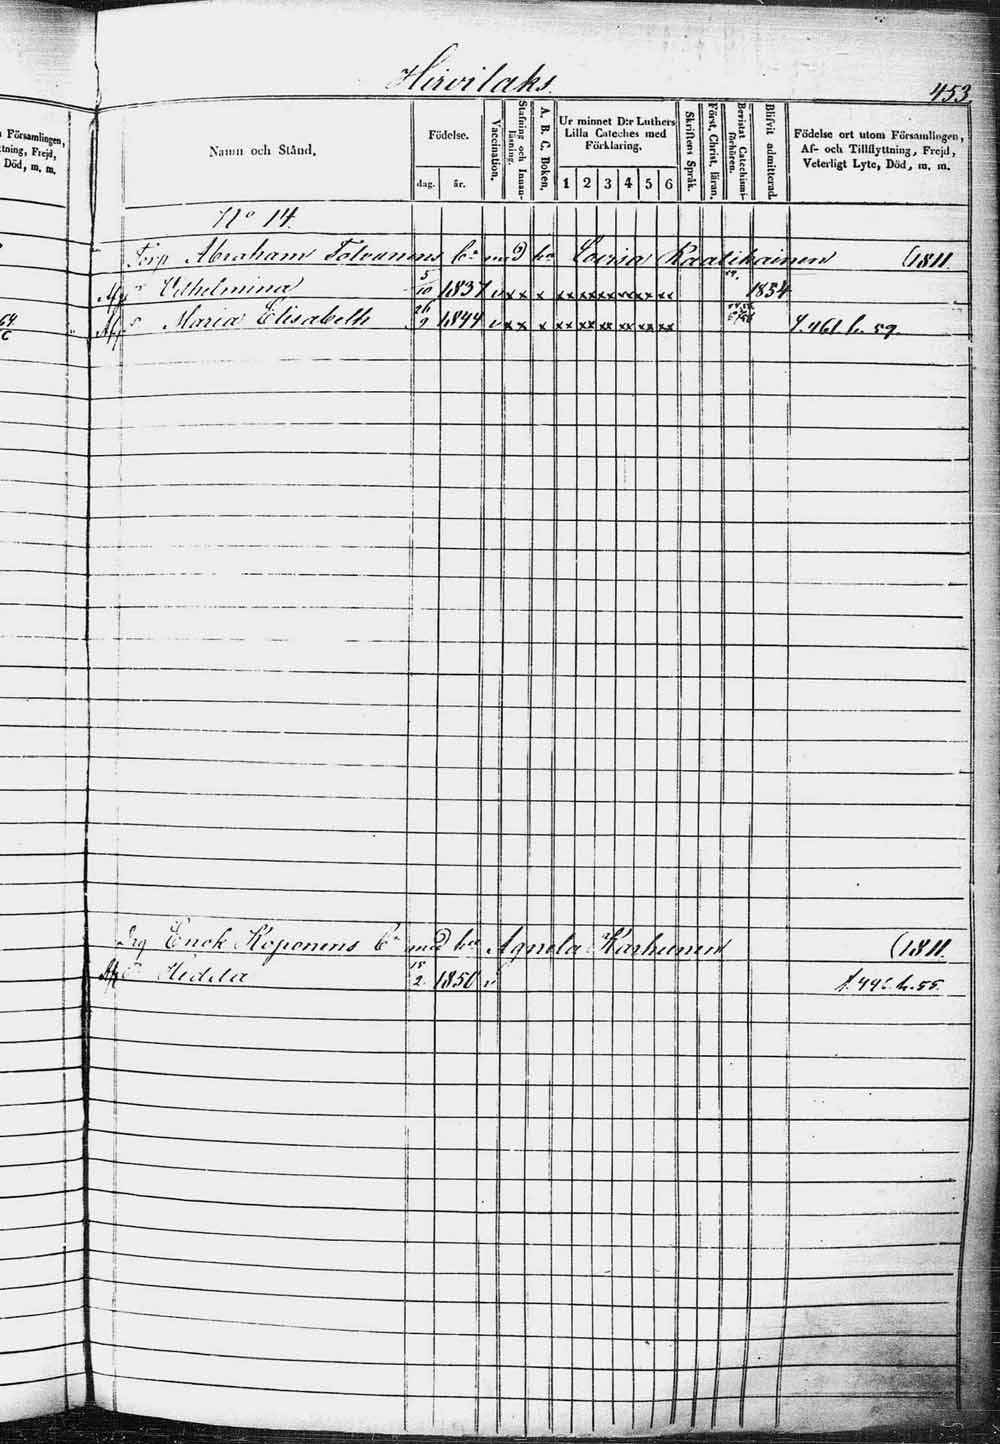 Hirvilaks.
453.
Församlingen,
ttning, Frejd,
Död, m. m.
Namn och Stånd.
Födelse.
dag.
år.
Vaccination.
Stafning och Innan-
läsning.
A. B. C. Boken.
Ur minnet D:r Luthers
Lilla Cateches med
Förklaring.
1 2 3 4 5 6
Skriftens Språk.
Förest. Christ. läran.
Bevistat Catechismi-
förhören.
Blifvit admitterad.
Födelse ort utom Församlingen,
Af- och Tillflyttning, Frejd,
Veterligt Lyte, Död, m. m.
No 14.
Torp Abraham Tolvanens bn med hu Lovisa Raatikainen (1811.
Vilhelmina 5/10 1837 v x x x xx xx xx xx xx xx 1854
Maria Elisabeth 26/9 1844 v x x x xx xx xx xx xx xx f. 461 h. 59.
Drg Enok Koponens bn med hu Agneta Karhunen (1811.
Hedda 15/2 1850 v f. 446. h. 55.